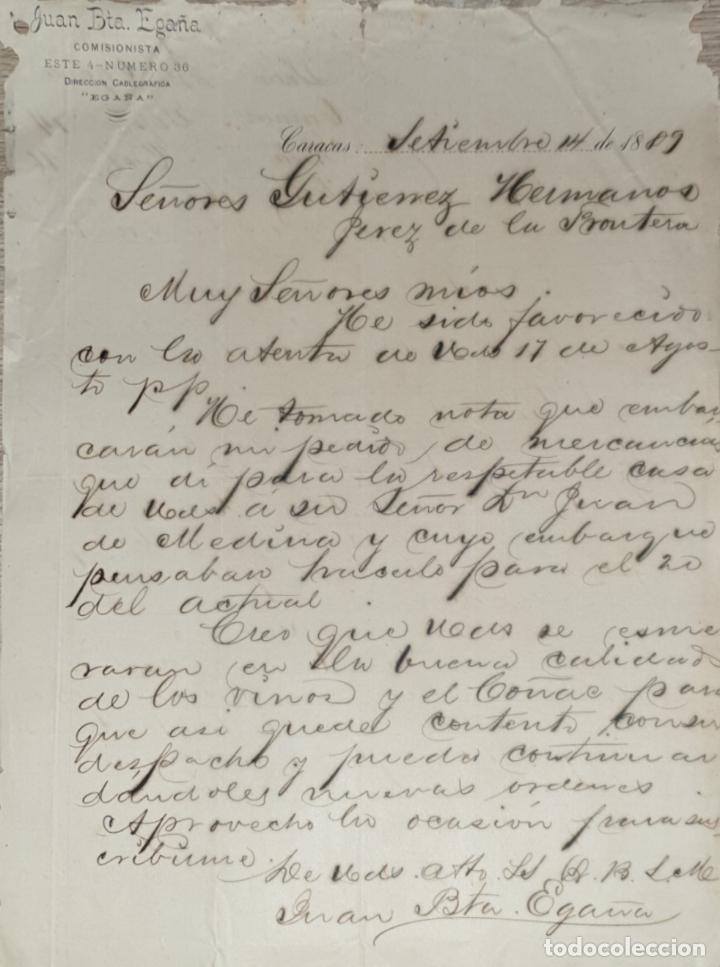 Juan Bta. Egaña
COMISIONISTA
ESTE 4-NUMERO 36
DIRECCION CABLEGRÁFICA
"EGAÑA"
Caracas: Setiembre 14 de 1889
Señores Gutierrez Hermanos
Jerez de la Frontera
Muy Señores míos.
He sido favorecido
con la atenta de Uds 17 de Agos-
to pp.
He tomado nota que embar
carán mi pedido de mercancias
que dí para la respetable casa
de Uds á su Señor Dn Juan
de Medina y cuyo embarque
pensaban hacerlo para el 20
del actual.
Creo que Uds se esme
raran en la buena calidad
de los vinos y el Coñac para
que asi quede contento con su
despacho y pueda continuar
dándoles nuevas ordenes.
Aprovecho la ocasión para sus
cribirme.
De Uds. atto. SS Q. B. S. M
Juan Bta. Egaña
todocoleccion
todocoleccion.net